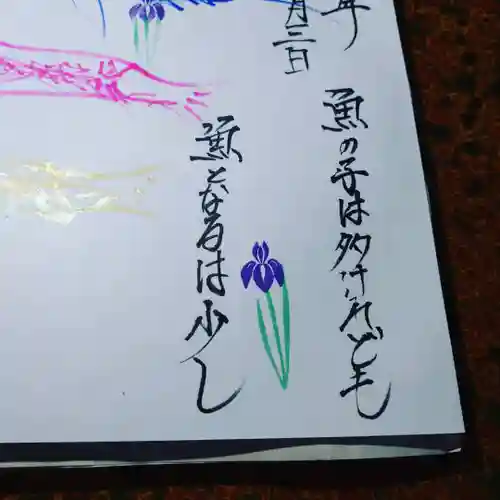 年
月三日
魚の子は多けれども
魚となるは少し